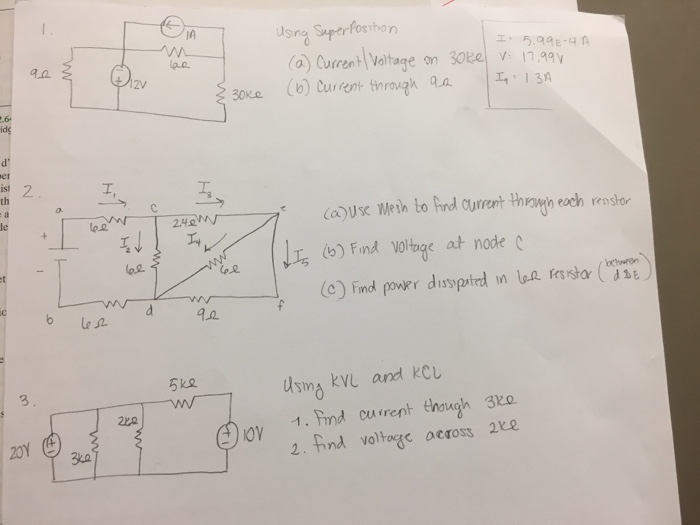 1.
1A
6Ω
9Ω
12V
30kΩ
Using SuperPosition
(a) Current/Voltage on 30kΩ
(b) Current through 9Ω
I: 5.99E-4 A
V: 17.99V
I9: 1.3A
2.
a
I1
c
I3
e
6Ω
24Ω
I2
I4
I5
6Ω
6Ω
+
-
b
6Ω
d
9Ω
f
(a) Use Mesh to find current through each resistor
(b) Find voltage at node C
(c) Find power dissipated in 6Ω resistor (between d & E)
3.
5kΩ
2kΩ
20V
3kΩ
10V
Using KVL and KCL
1. Find current though 3kΩ
2. Find voltage across 2kΩ